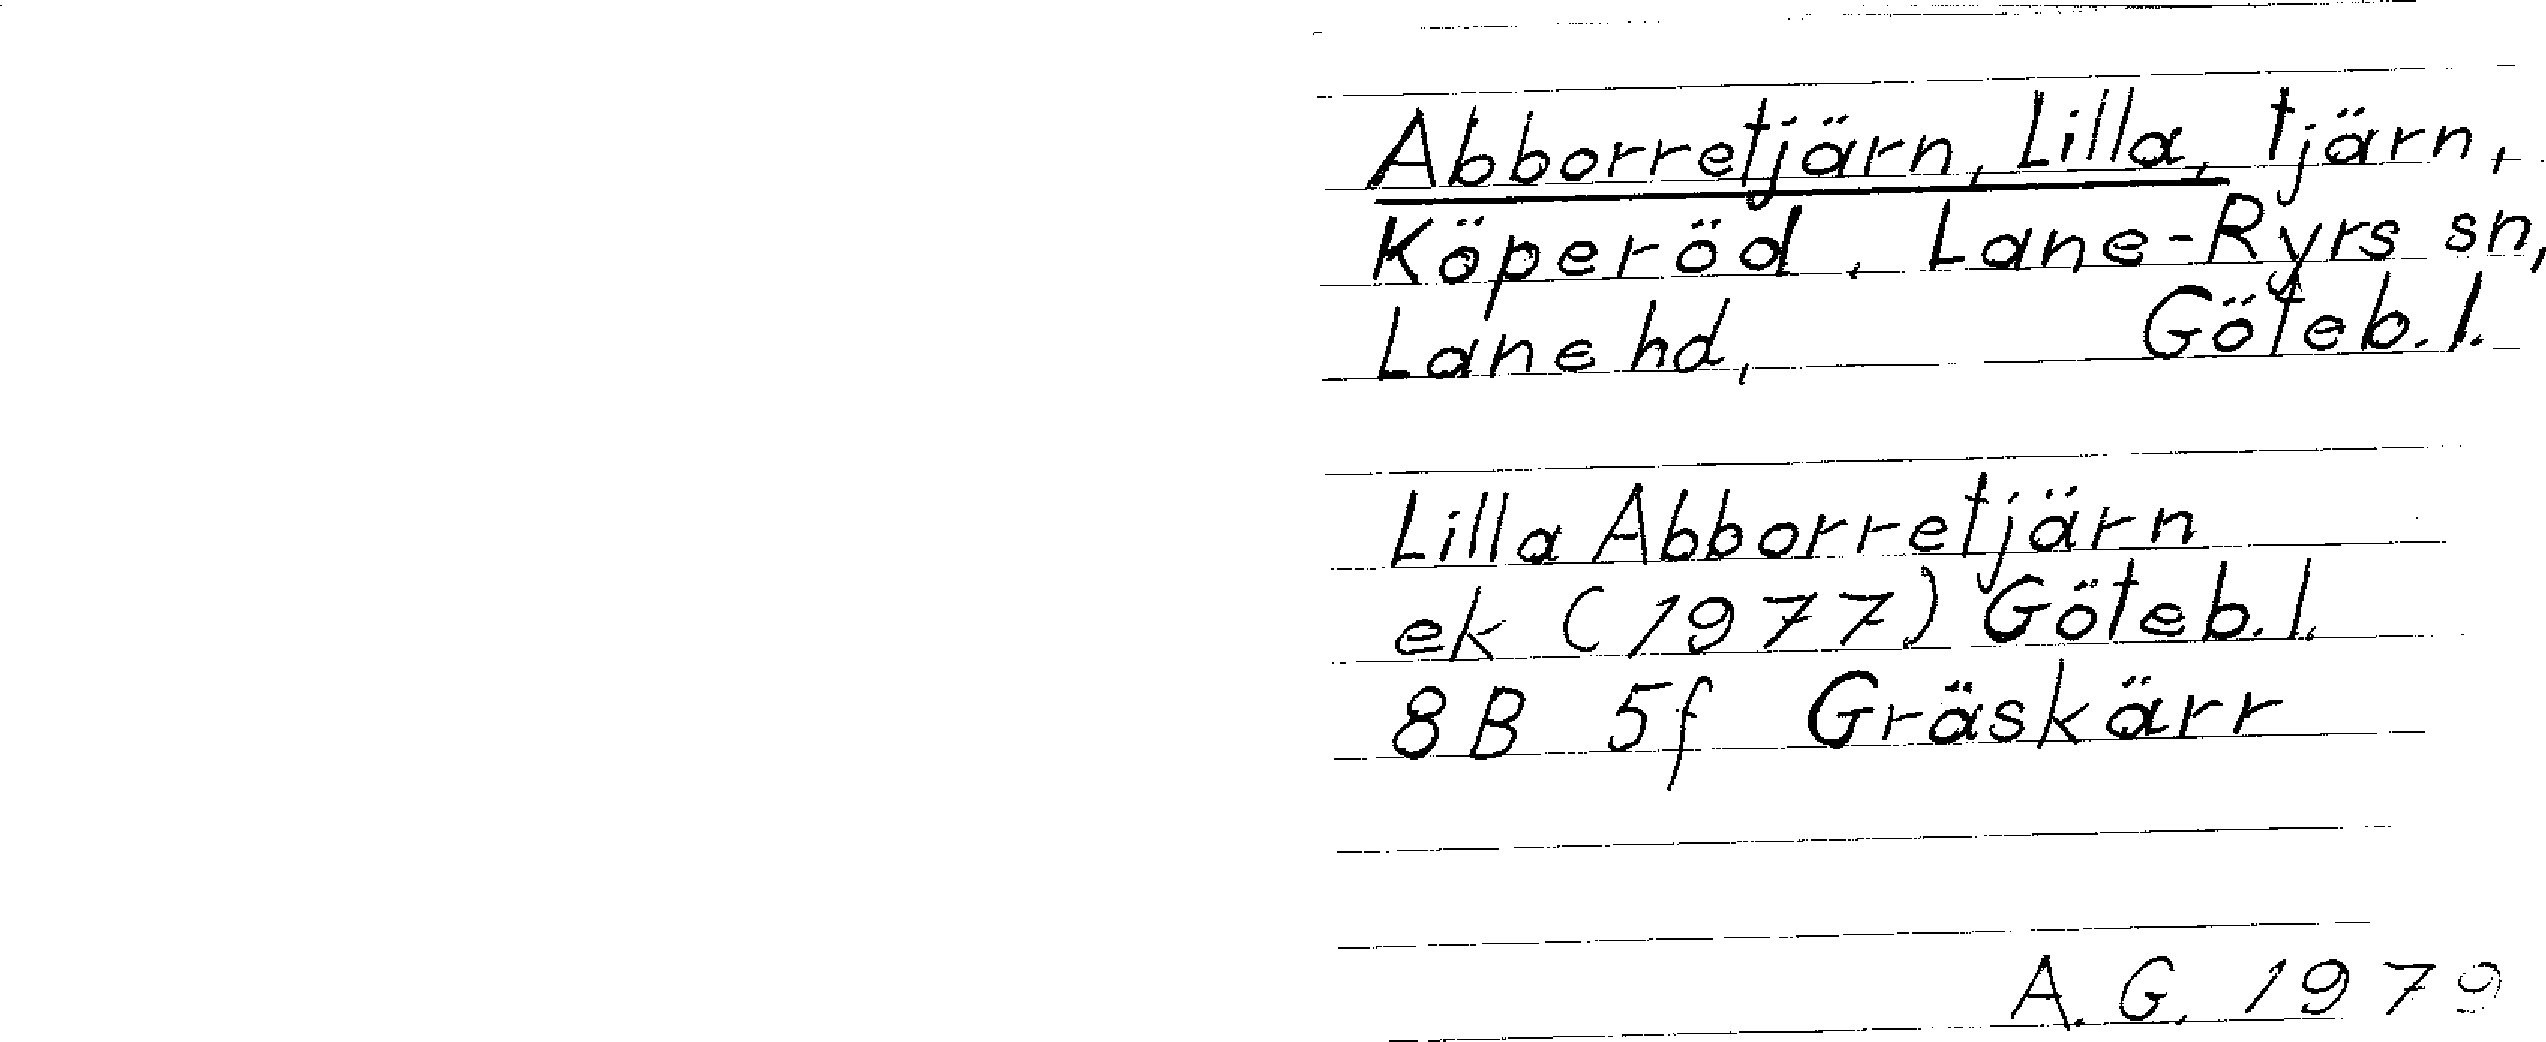 Abborretjärn, Lilla, tjärn,
Köperöd, Lane-Ryrs sn,
Lane hd, Göteb.l.
Lilla Abborretjärn
ek (1977) Göteb.l.
8B 5f Gräskärr
A.G. 1979